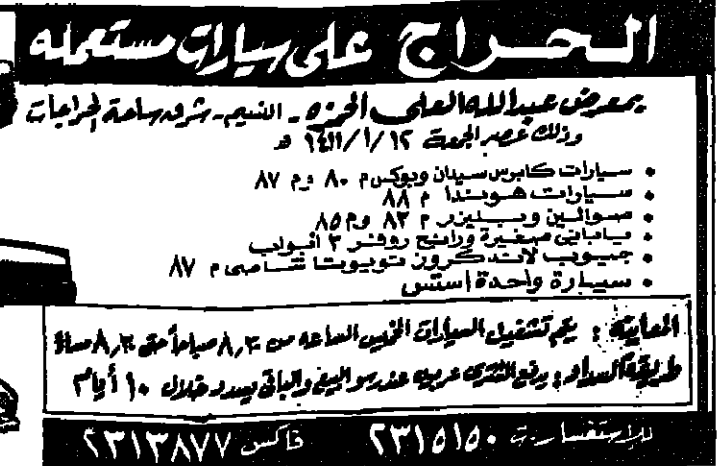 الحراج على سيارات مستعمله
بمعرض عبدالله العلي الحمزه - النسيم - شرق ساحة الحراجات
وذلك عصر الجمعة ١٤١١/١/١٢ هـ
• سيارات كابرس سيدان وبوكس م ٨٠ وم ٨٧
• سيارات هوندا م ٨٨
• صوالين وبليزر م ٨٢ وم ٨٥
• يابانى صغيرة ورانج روفر ٣ أبواب
• جيوب لاندكروزر تويوتا شاصى م ٨٧
• سيارة واحدة استس
المعاينة : يتم تشغيل السيارات الخميس الساعه من ٨,٣٠ صباحاً حتى ٨,٣٠ مساءً
طريقة السداد : يدفع المشترى عربون عند رسو البيع والباقى يسدد خلال ١٠ أيام
للإستفسار ت ٢٣١٥١٥٠ فاكس ٢٣١٣٨٧٧